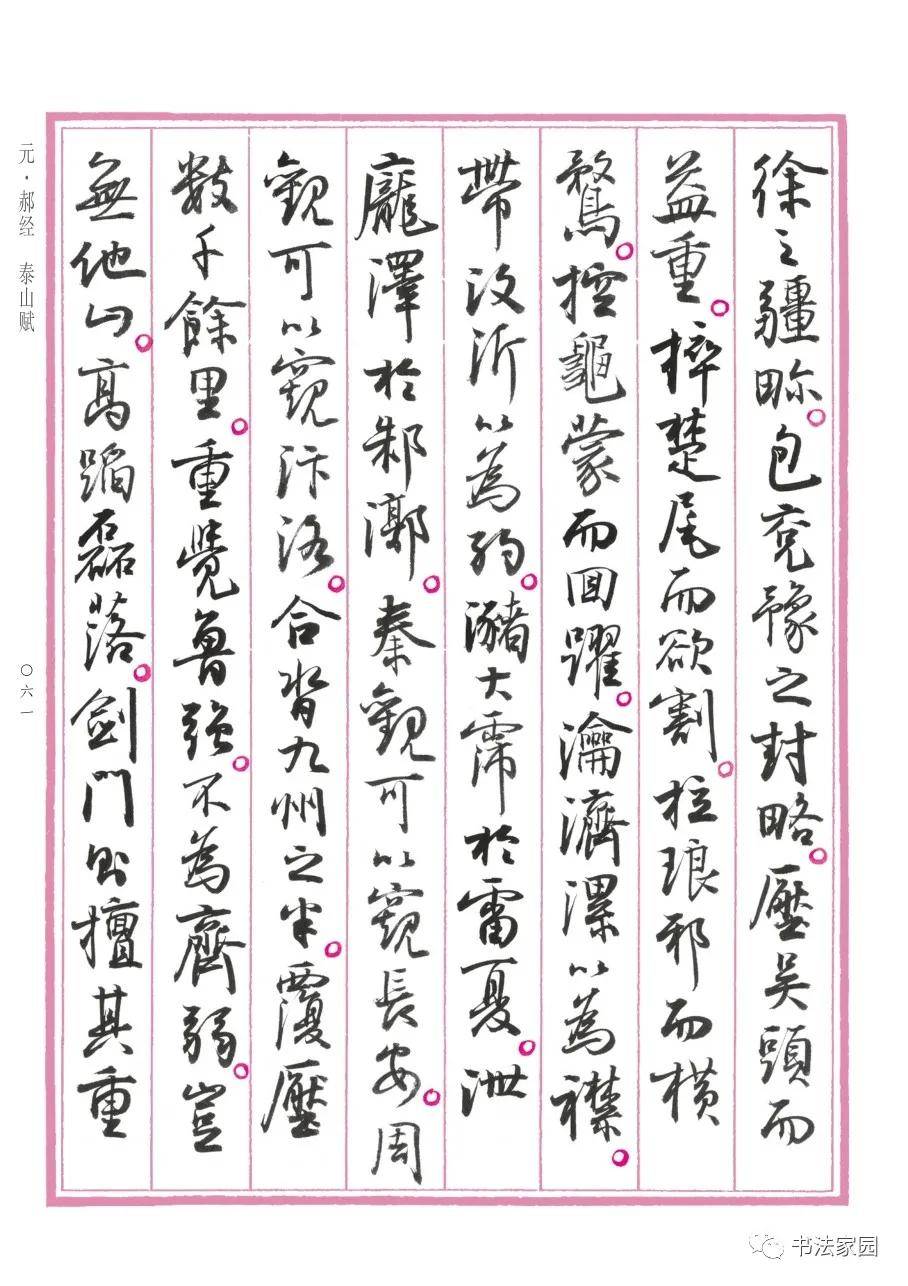 徐之疆畛。包兗豫之封略。壓吳頭而
益重。捽楚尾而欲割。拉琅邪而橫
鶩。控龜蒙而回躍。瀹濟漯以為襟。
帶汶沂以為約。瀦大霈於雷夏。泄
龐澤於郲漷。秦觀可以窺長安。周
觀可以窺汴洛。合沓九州之半。覆壓
數千餘里。重覺魯強。不為齊弱。豈
無他山。高蹈磊落。劍門則擅其重
元·郝经 泰山赋
〇六一
书法家园